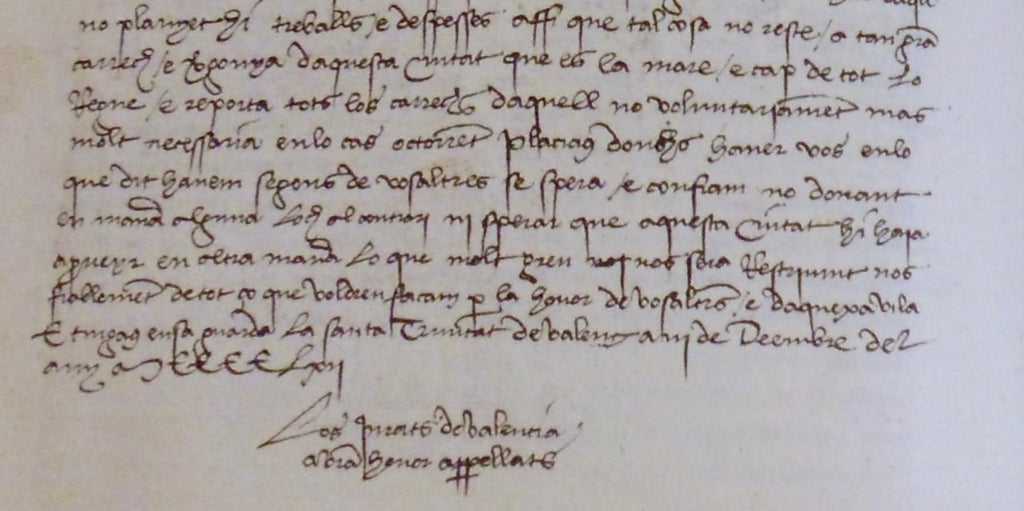 no planyet hi treballs / e despesses affi que tal cosa no reste / a tan gra
carrech / e vergonya daquesta Ciutat que es la mare / e cap de tot lo
Regne / e reporta tots los carrechs daquell no voluntariament mas
molt necessaria en lo cas ocorrent Placiaus donchs haver vos en lo
que dit havem segons de vosaltres se spera / e confiam no donant
en manera alguna loch al contrari ni sperar que aquesta Ciutat hi haia
a proveyr en altra manera lo que molt greu nos seria Rescrivint nos
fiablement de tot ço que voldreu façam per la honor de vosaltres / e daquexa vila
E tingaus en sa guarda la santa Trinitat de Valença a iii de Deembre del
any M CCCC Lxii
Los Jurats de Valencia
a vostra honor appellats